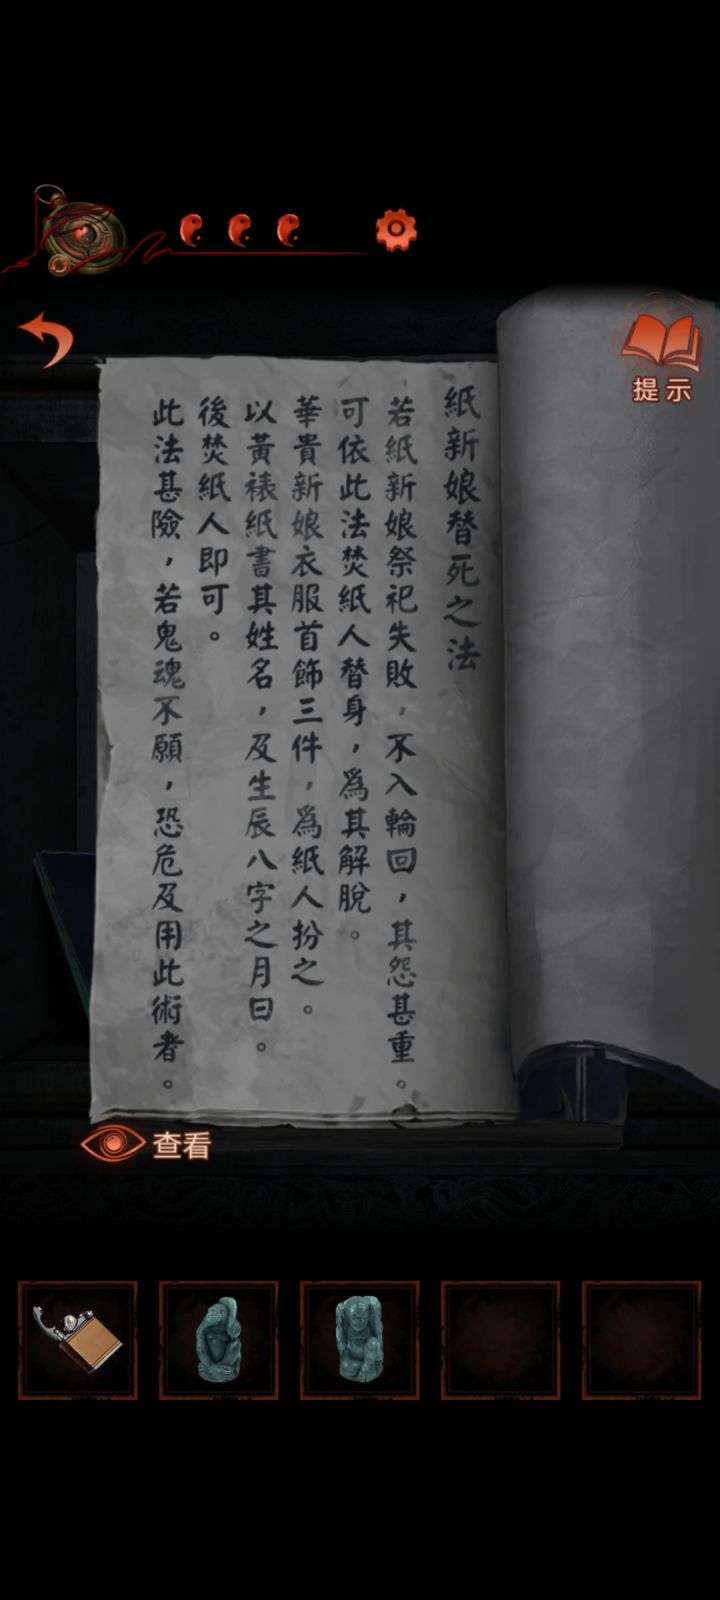 提示
紙新娘替死之法
若紙新娘祭祀失敗，不入輪回，其怨甚重。
可依此法焚紙人替身，為其解脫。
華貴新娘衣服首飾三件，為紙人扮之。
以黃裱紙書其姓名，及生辰八字之月日。
後焚紙人即可。
此法甚險，若鬼魂不願，恐危及用此術者。
查看